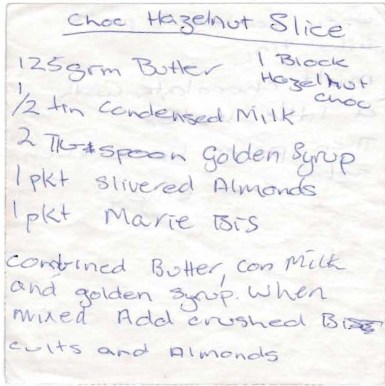 Choc Hazelnut Slice
125grm Butter
1 Block
Hazelnut
choc
1/2 tin Condensed Milk
2 spoon Golden Syrup
1 pkt Slivered Almonds
1 pkt Marie Bis
combined Butter, con Milk
and golden syrup. When
mixed Add crushed Bis
cuits and Almonds